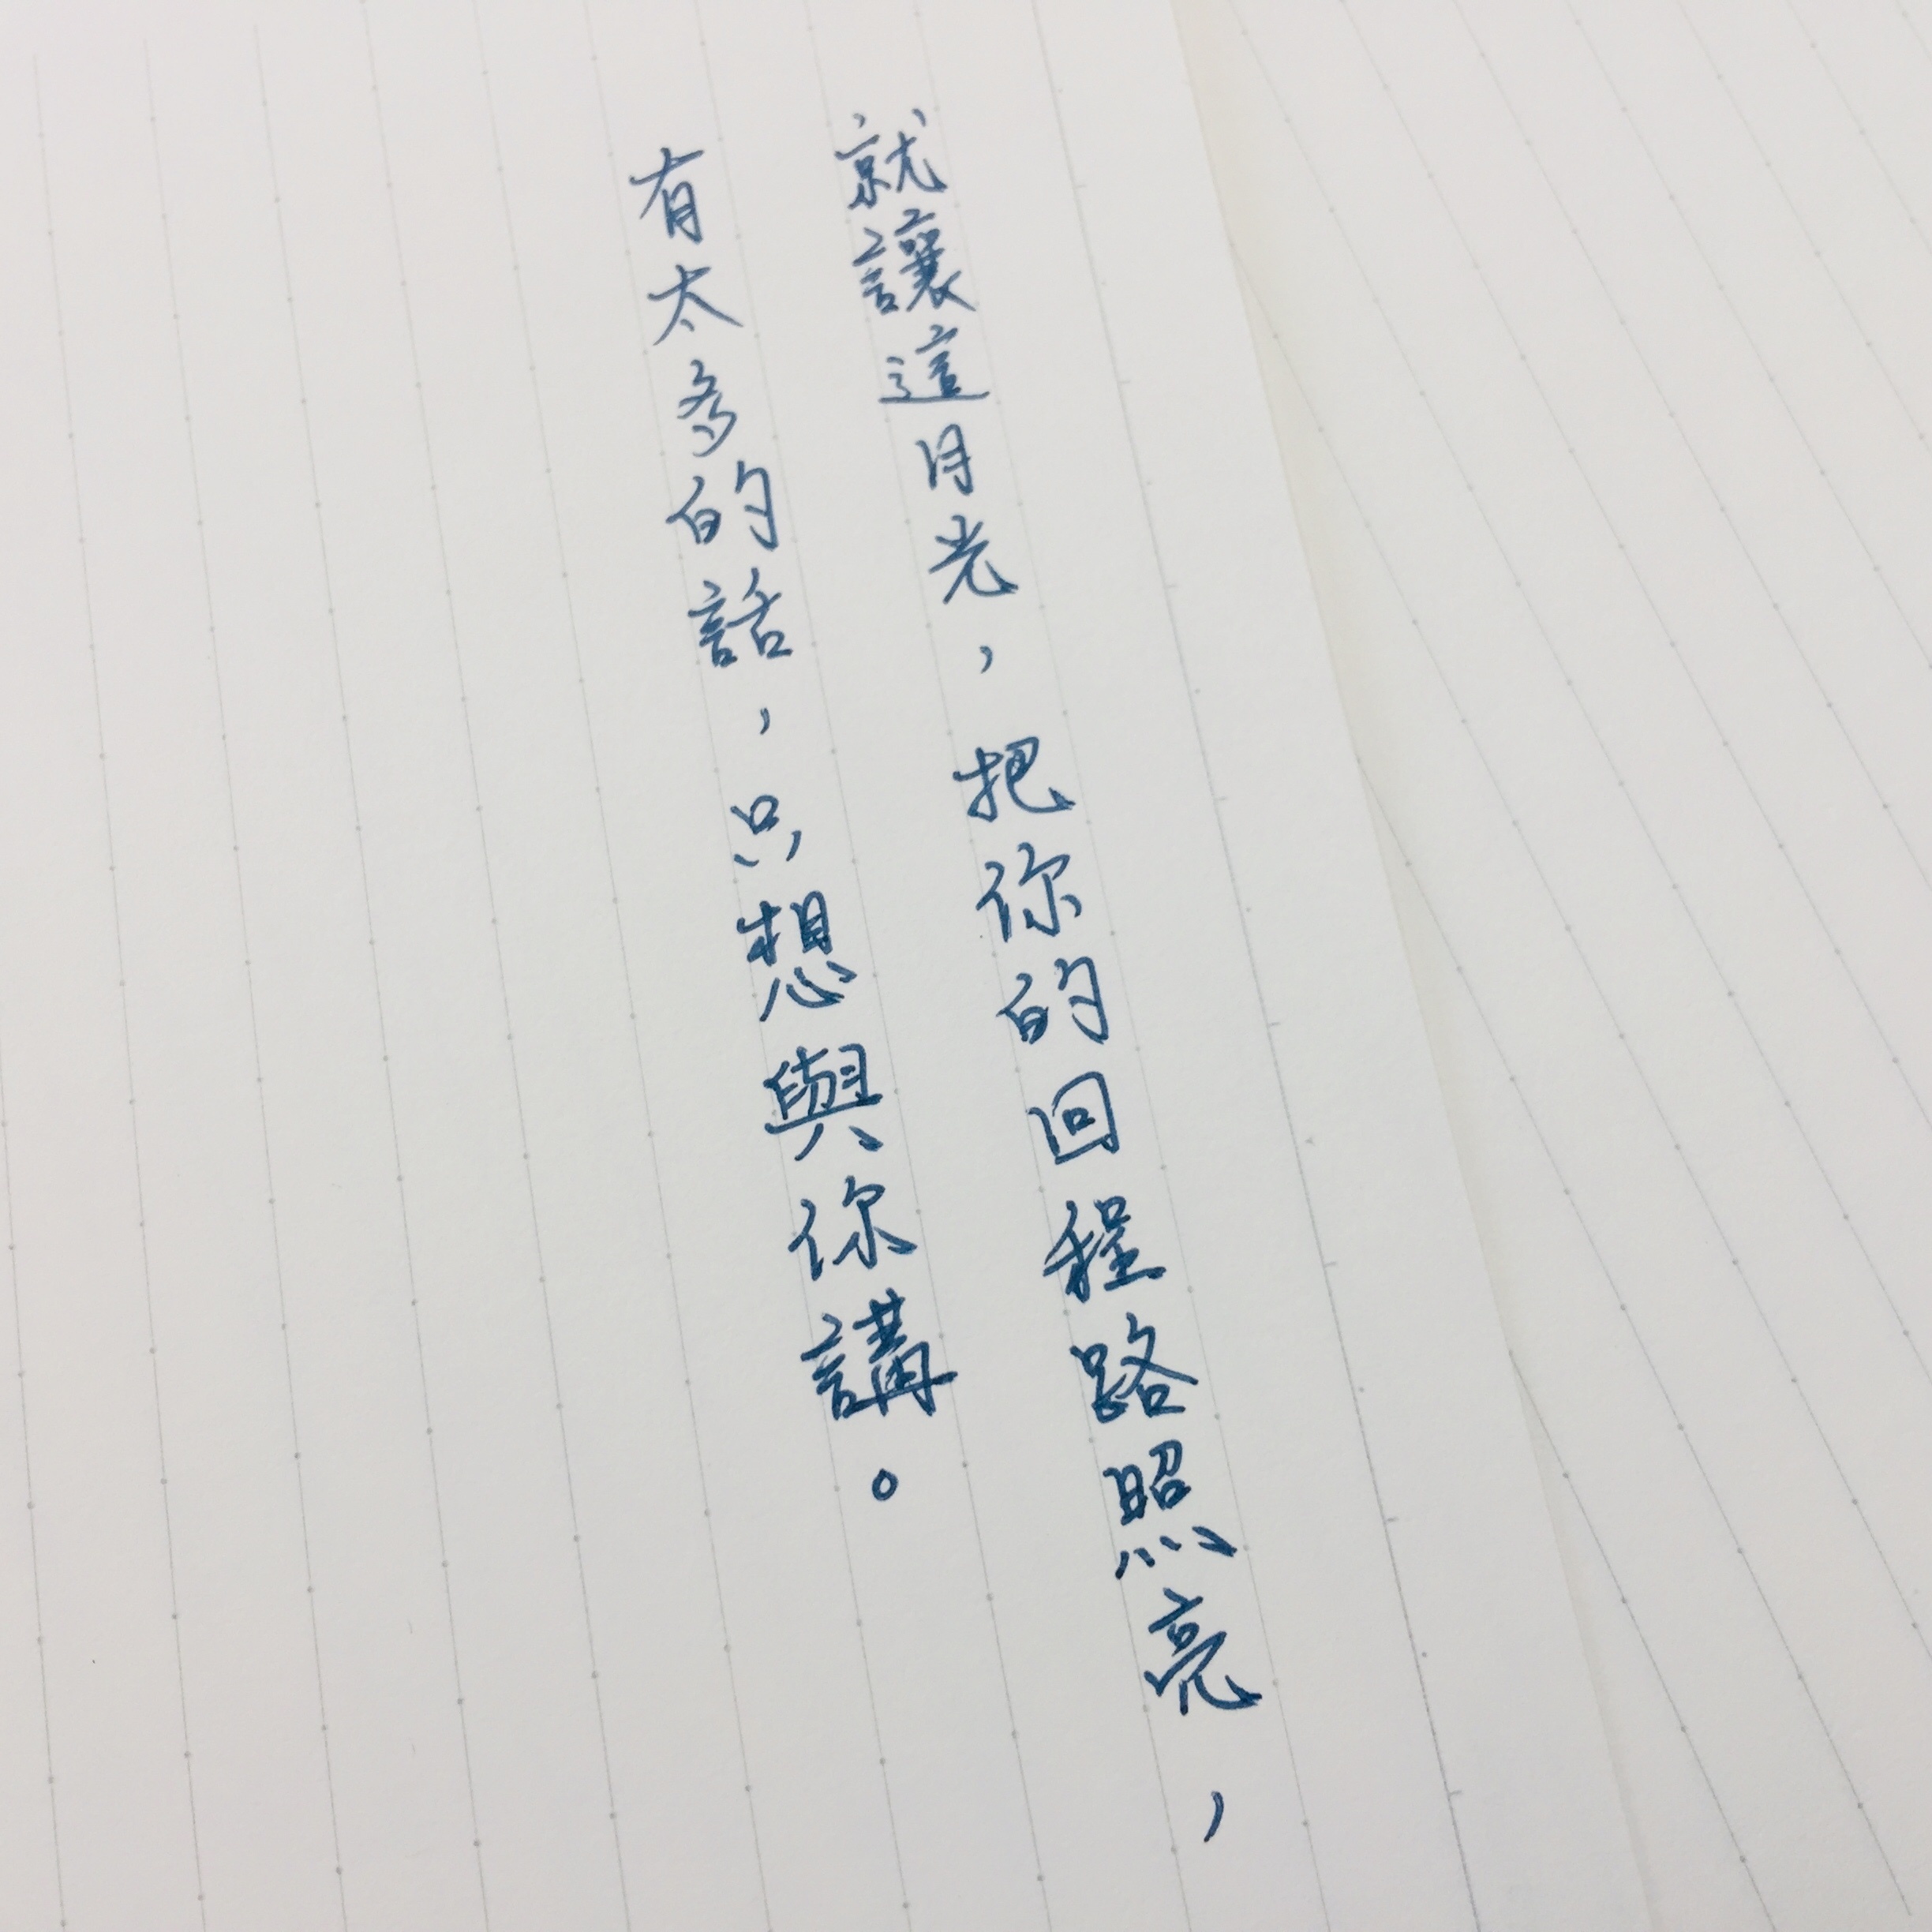 就讓這月光，把你的回程路照亮，
有太多的話，只想與你講。